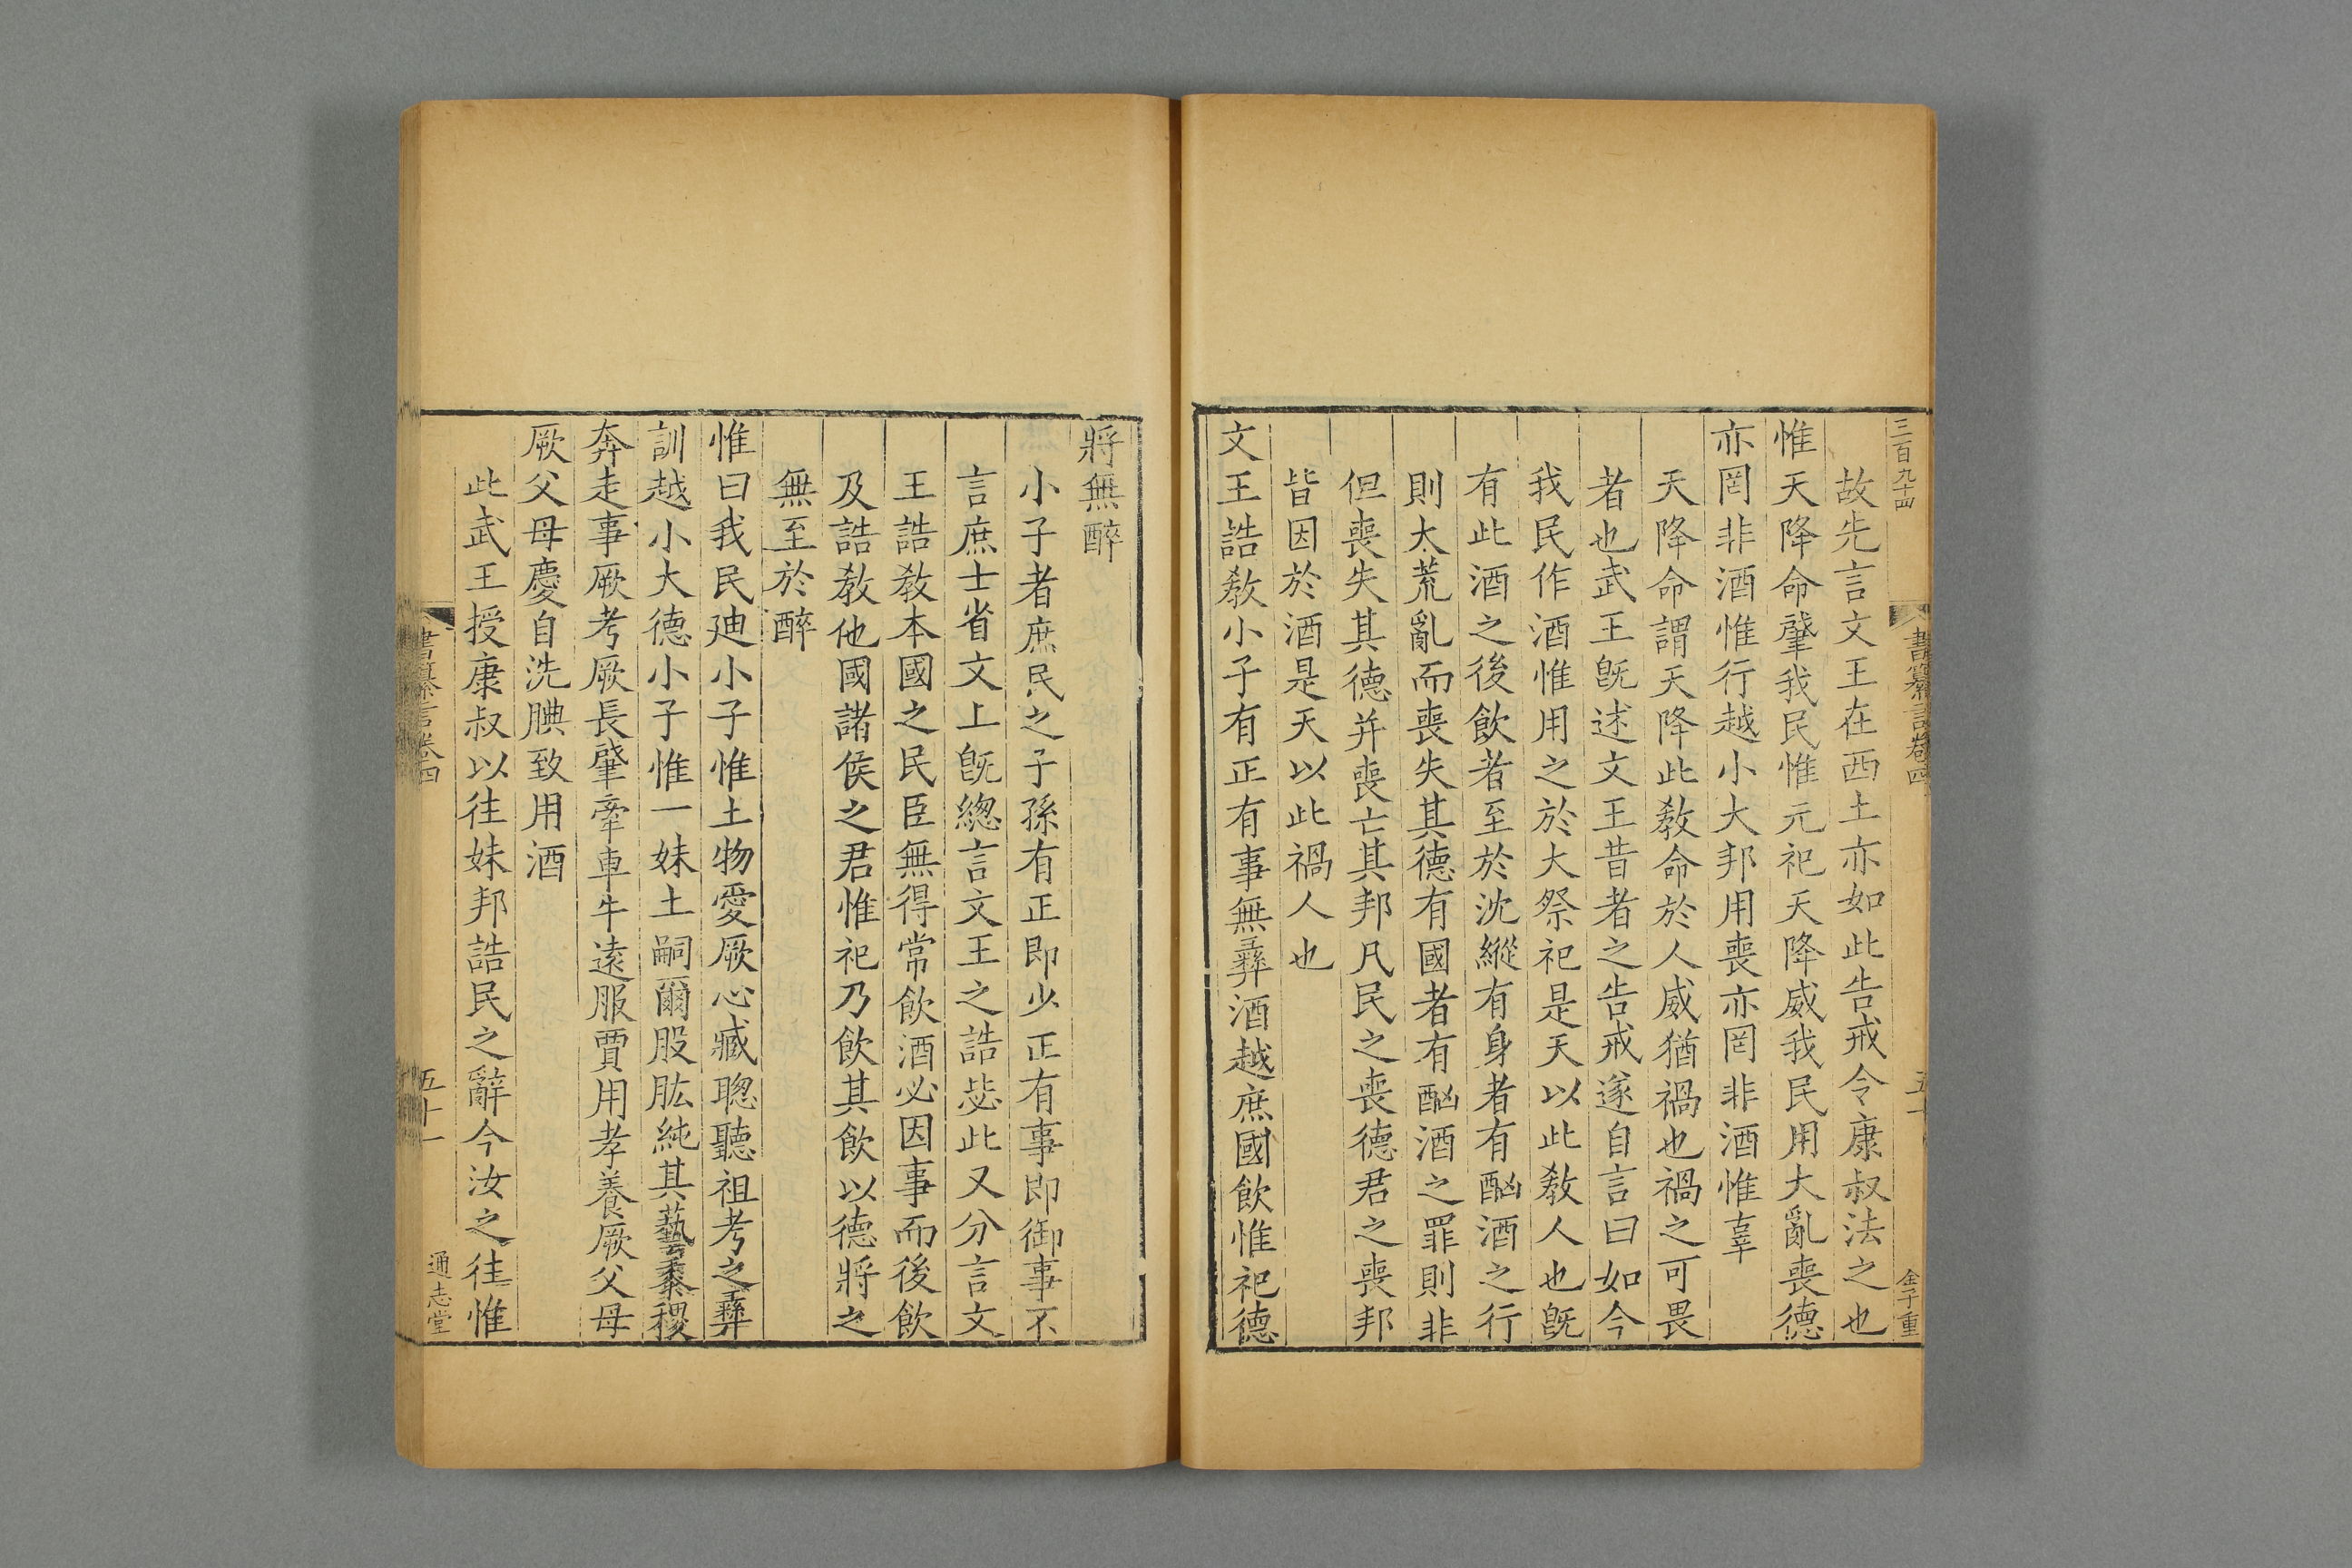 三百九十四
書纂言卷四
五十
金子重
故先言文王在西土亦如此告戒令康叔法之也
惟天降命肇我民惟元祀天降威我民用大亂喪德
亦罔非酒惟行越小大邦用喪亦罔非酒惟辜
天降命謂天降此敎命於人威猶禍也禍之可畏
者也武王旣述文王昔者之告戒遂自言曰如今
我民作酒惟用之於大祭祀是天以此敎人也旣
有此酒之後飮者至於沈縱有身者有酗酒之行
則大荒亂而喪失其德有國者有酗酒之罪則非
但喪失其德并喪亡其邦凡民之喪德君之喪邦
皆因於酒是天以此禍人也
文王誥敎小子有正有事無彝酒越庶國飮惟祀德
將無醉
小子者庶民之子孫有正即少正有事即御事不
言庶士省文上旣總言文王之誥毖此又分言文
王誥敎本國之民臣無得常飮酒必因事而後飮
及誥敎他國諸侯之君惟祀乃飮其飮以德將之
無至於醉
惟曰我民迪小子惟土物愛厥心臧聰聽祖考之彝
訓越小大德小子惟一妹土嗣爾股肱純其藝黍稷
奔走事厥考厥長肇牽車牛遠服賈用孝養厥父母
厥父母慶自洗腆致用酒
此武王授康叔以往妹邦誥民之辭今汝之往惟
書纂言卷四
五十一
通志堂